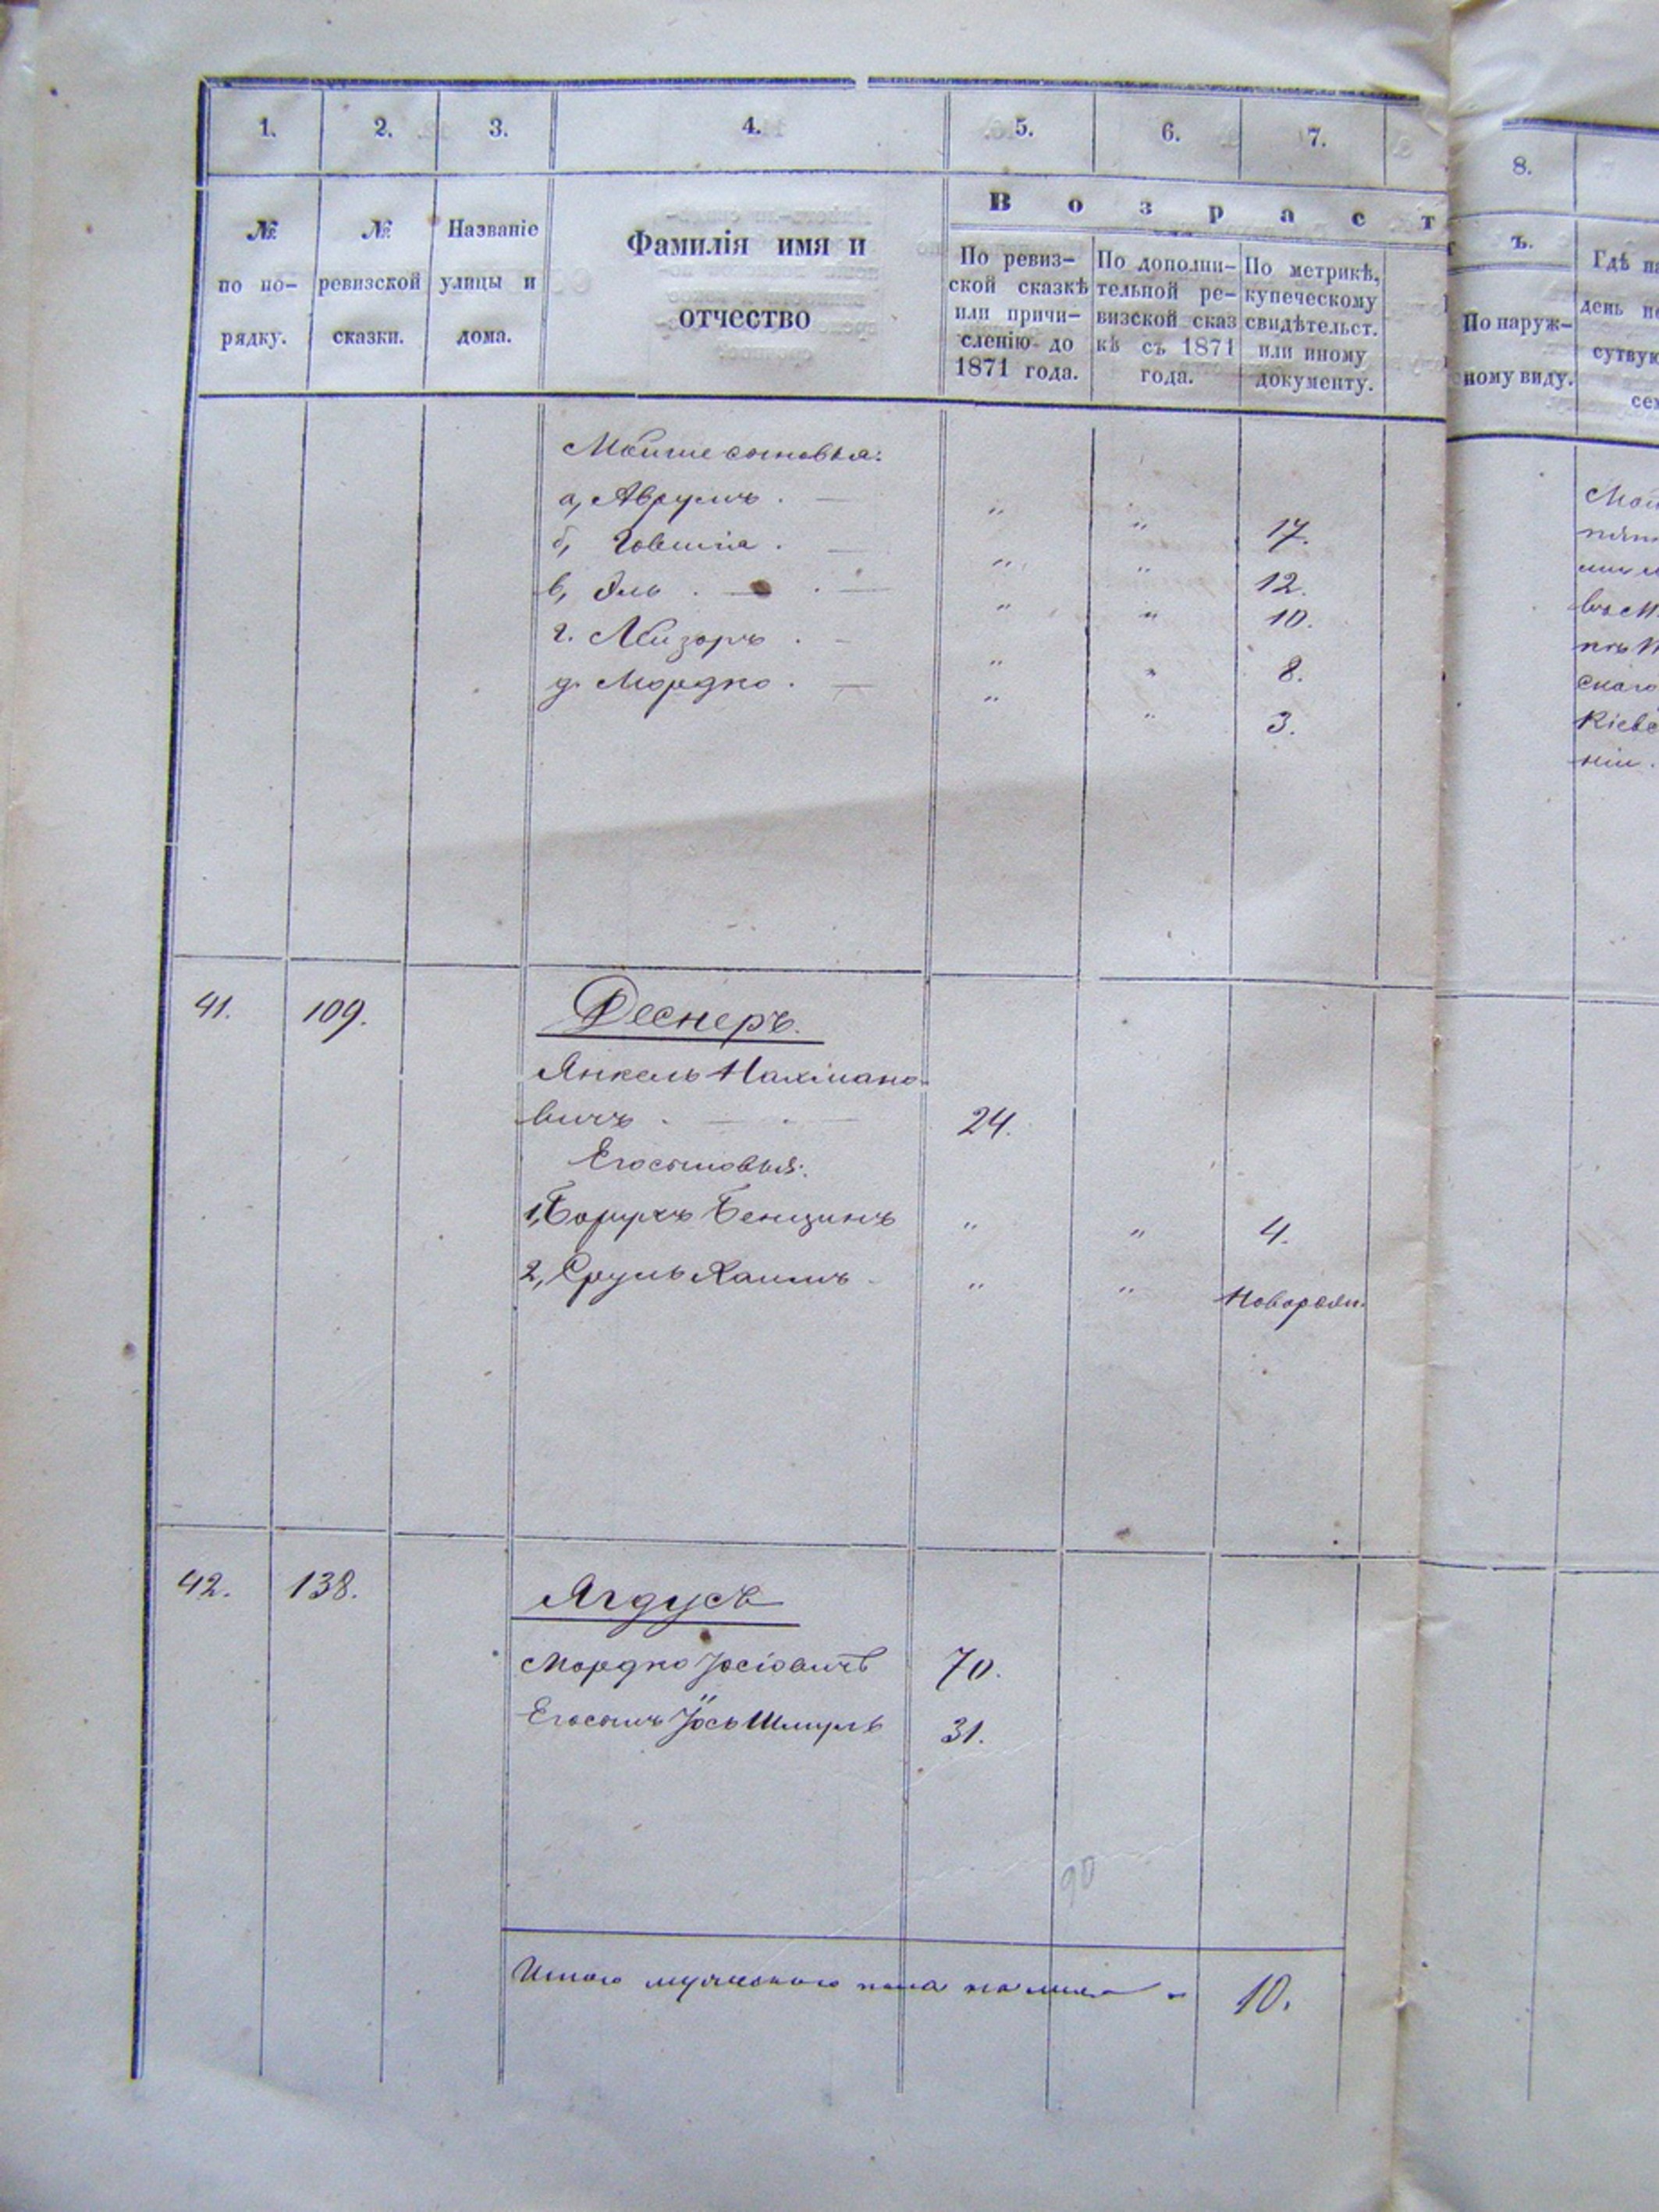 1. 2. 3. 4. 5. 6. 7.
8.
№ по по-рядку.
№ ревизской сказки.
Названіе улицы и дома.
Фамилія имя и отчество
Возрастъ.
По ревиз-
ской сказкѣ
или причи-
сленію до
1871 года.
По дополни-
тельной ре-
визской сказ
кѣ съ 1871
года.
По метрикѣ,
купеческому
свидѣтельст.
или иному
документу.
По наруж-
ному виду.
Гдѣ
день
Мойше сыновья:
а, Аврумъ . — " " 17.
б, Іовшіа . — " " 12.
в, Эль . — . — " " 10.
г. Лейзоръ . — " " 8.
д. Мордко . — " " 3.
41. 109. Деснеръ.
Янкель Нахмано-
вичъ . — . — 24.
Его сыновья:
1, Борухъ Бенціонъ " " 4.
2, Сруль Хаимъ " " Новорожд.
42. 138. Ягдусъ
Мордко Іосіовичъ 70.
Его сынъ Іось Шмуль 31.
90
Итого мужескаго пола 10.